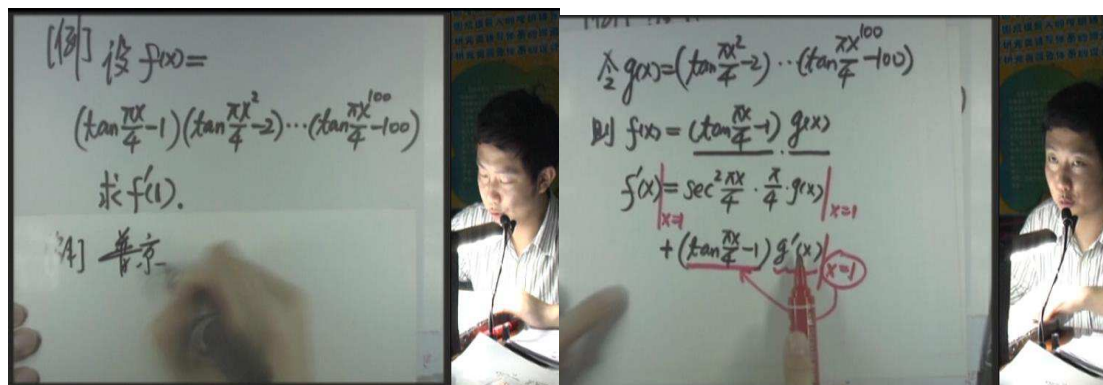 [例] 设 f(x)=
(tan πx/4 -1)(tan πx²/4 -2)⋯(tan πx¹⁰⁰/4 -100)
求 f'(1).
令 g(x)=(tan πx²/4 -2)⋯(tan πx¹⁰⁰/4 -100)
则 f(x)=(tan πx/4 -1)·g(x)
f'(x)|x=1 = sec² πx/4 · π/4 · g(x)|x=1
+(tan πx/4 -1) g'(x)|x=1